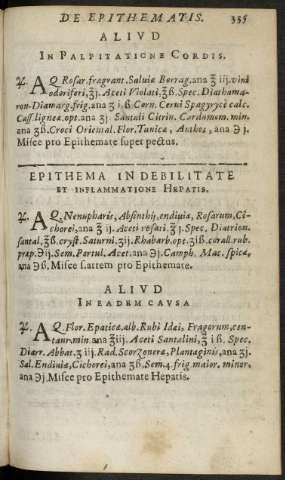 DE EPITHEMATIS. 335
ALIVD
IN PALPITATIONE CORDIS.
℞. AQ Rosar. fragrant. Saluiæ Borrag. ana ℥ iij. vini
odoriferi, ℥j. Aceti Violati, ℥ß. Spec. Diathama-
ron-Diamarg. frig. ana ʒ i.ß. Corn. Cerui Spagyrycè calc.
Cass. ligneæ. opt. ana ʒj. Santali Citrin. Cardamom. min.
ana ʒß. Croci Oriental. Flor. Tunicæ, Anthos, ana ℈ j.
Misce pro Epithemate super pectus.
EPITHEMA IN DEBILITATE
ET INFLAMMATIONE HEPATIS.
℞. AQ Nenupharis, Absinthij, endiuiæ, Rosarum, Ci-
chorei, ana ℥ ij. Aceti rosati. ℥ j. Spec. Diatrion.
santal. ℥ß. cryst. Saturni. ʒij. Rhabarb. opt. ʒiß. corall. rub.
præp. ℈ij. Sem. Portul. Acet. ana ℈j. Camph. Mac. spicæ,
ana ℈ß. Misce s. artem pro Epithemate.
ALIVD
IN EADEM CAVSA
℞. AQ Flor. Epaticæ. alb. Rubi Idæi, Fragorum, cen-
taur. min. ana ℥iij. Aceti Santalini, ℥ i ß. Spec.
Diarr. Abbat. ʒ iij. Rad. Scorzoneræ, Plantaginis, ana ʒj.
Sal. Endiuiæ, Cichorei, ana ʒß. Sem. 4. frig. maior. minor.
ana ℈j. Misce pro Epithemate Hepatis.